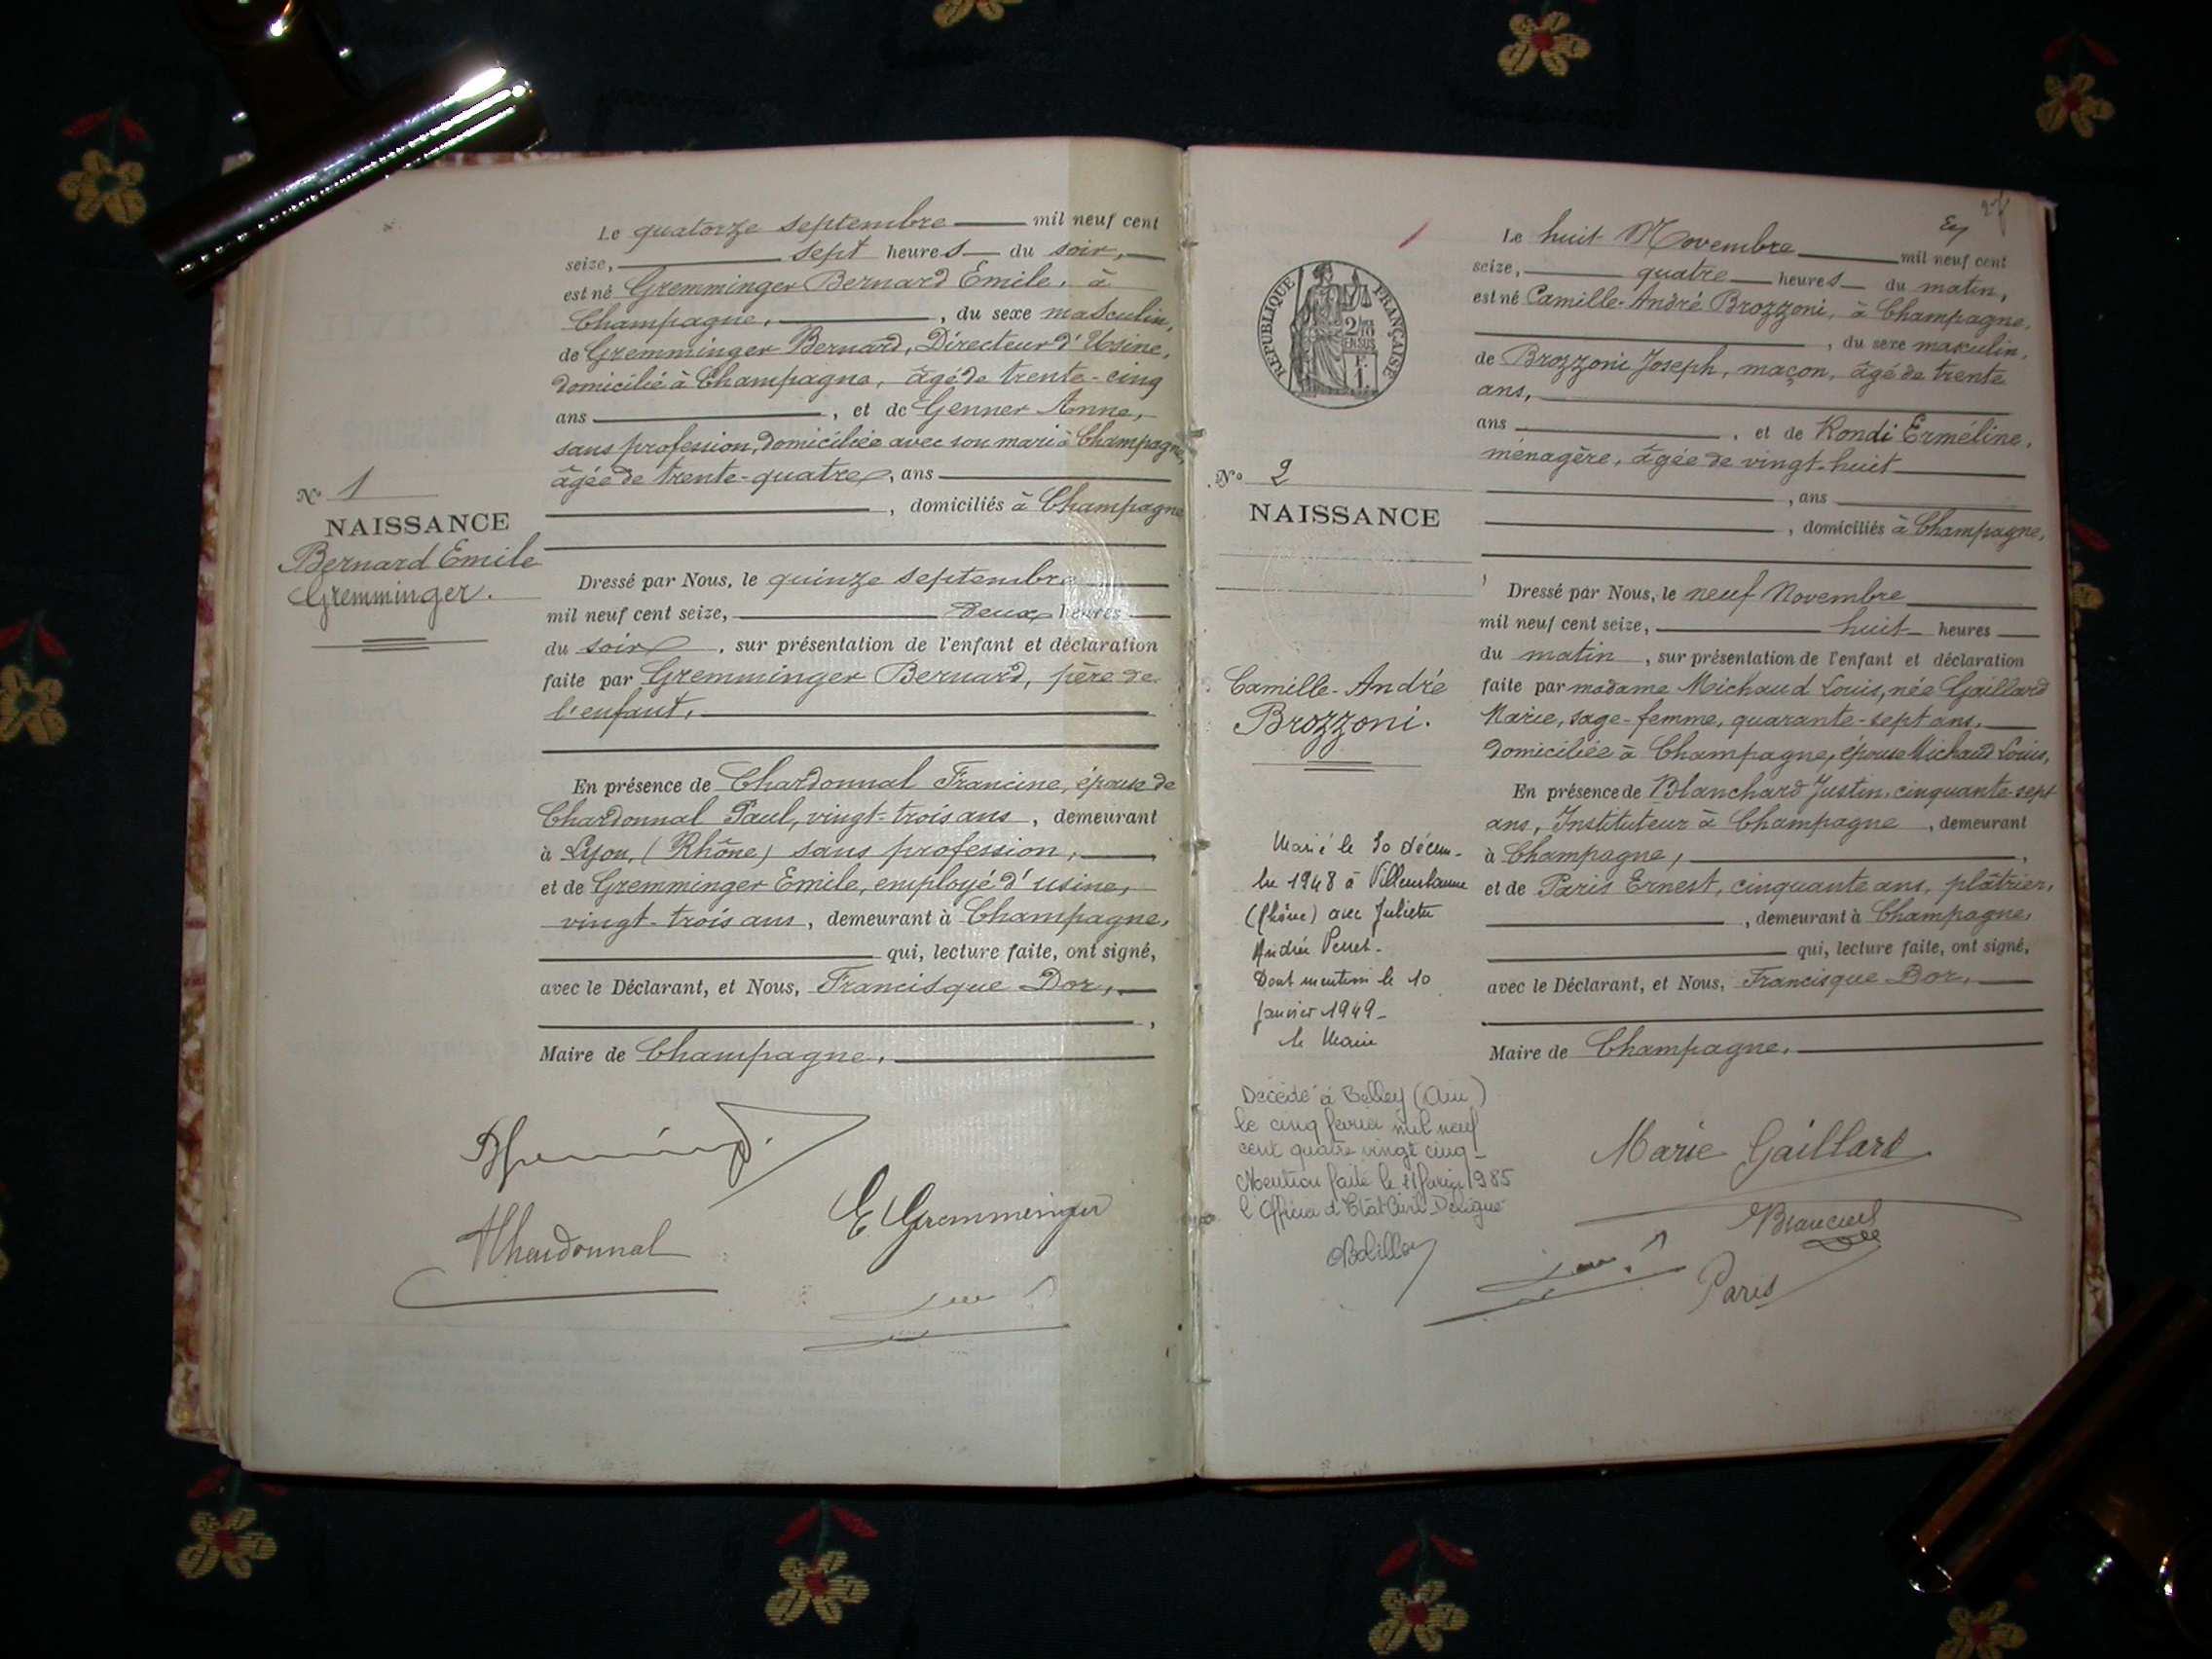 Le quatorze septembre mil neuf cent
seize, sept heures du soir,
est né Gremminger Bernard Emile, à
Champagne, , du sexe masculin,
de Gremminger Bernard, Directeur d'Usine,
domicilié à Champagne, âgé de trente-cinq
ans , et de Genner Anne,
sans profession, domiciliée avec son mari à Champagne,
âgée de trente-quatre, ans
, domiciliés à Champagne
N° 1
NAISSANCE
Bernard Emile
Gremminger.
Dressé par Nous, le quinze septembre
mil neuf cent seize, deux heures
du soir , sur présentation de l'enfant et déclaration
faite par Gremminger Bernard, père de
l'enfant,
En présence de Chardonnal Francine, épouse de
Chardonnal Paul, vingt-trois ans , demeurant
à Lyon, (Rhône) sans profession,
et de Gremminger Emile, employé d'usine,
vingt-trois ans, demeurant à Champagne,
qui, lecture faite, ont signé,
avec le Déclarant, et Nous, Francisque Dor,
Maire de Champagne,
E Gremminger
Chardonnal
Le huit Novembre mil neuf cent
seize, quatre heures du matin,
est né Camille-André Brozzoni, à Champagne,
, du sexe masculin,
de Brozzoni Joseph, maçon, âgé de trente
ans,
ans , et de Rondi Erméline,
ménagère, âgée de vingt-huit
, ans
, domiciliés à Champagne,
RÉPUBLIQUE FRANÇAISE
2/10
EN SUS
F.
1.
N° 2
NAISSANCE
Camille-André
Brozzoni.
Dressé par Nous, le neuf Novembre
mil neuf cent seize, huit heures
du matin , sur présentation de l'enfant et déclaration
faite par madame Michaud Louis, née Gaillard
Marie, sage-femme, quarante-sept ans,
domiciliée à Champagne, épouse Michaud Louis,
En présence de Blanchard Justin, cinquante-sept
ans, Instituteur à Champagne , demeurant
à Champagne,
et de Paris Ernest, cinquante ans, plâtrier,
, demeurant à Champagne,
qui, lecture faite, ont signé,
avec le Déclarant, et Nous, Francisque Dor,
Maire de Champagne,
Marié le 30 décem-
bre 1948 à Villeurbanne
(Rhône) avec Juliette
Andrée Perret.
Dont mention le 10
janvier 1949
le Maire
Décédé à Belley (Ain)
le cinq février mil neuf
cent quatre vingt cinq
Mention faite le 11 février 1985
l'Officier d'Etat Civil Délégué
Marie Gaillard
Paris